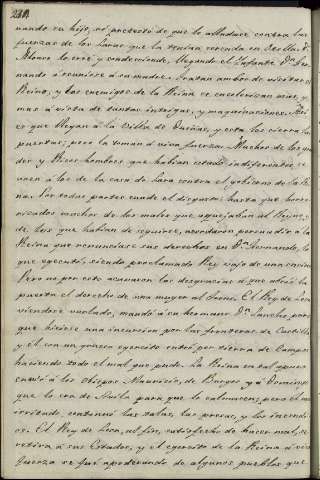 nando su hijo, só pretesto de que le ayudase contra las
fuerzas de los Laras que la tenian cercada en Otella. Dn.
Alonso lo creé y condesciende, llegando el Infante Dn. Fer-
nando á reunirse á su madre. Tratan ambos de visitar el
Reino, y los enemigos de la Reina se encolerizan mas, y
mas á vista de tantas intrigas, y maquinaciones.
es que llegan á la Villa de Dueñas, y esta les cierra las
puertas; pero la toman á viva fuerza. Muchos de los
der y Ricos hombres que habian estado indiferentes se
unen á los de la casa de Lara contra el gobierno de la Rei-
na. Por todas partes cunde el disgusto: hasta que horro-
rizados muchos de los males que aquejaban al Reyno, y
de los que habian de seguirse, acordaron persuadir á la
Reina que renunciase sus derechos en Dn. Fernando, lo
que ejecutó, siendo proclamado Rey
Pero no por esto acabaron las desgracias á que abrió la
puerta el derecho de una muger al Trono. El Rey de Leon
viendose burlado, mandó á su hermano Dn. Sancho, para
que hiciese una incursion por las fronteras de Castilla,
y él con un grueso egercito entró por tierra de Campos
haciendo todo el mal que puede. La Reina en tal apuro
envió á los Obispos Mauricio, de Burgos y á Domingo
que lo era de Avila para que le calmasen; pero él
irritado, continuó las talas, las presas, y los incendi-
os. El Rey de Leon, al fin, satisfecho de hacer mal, se
retira á sus Estados, y el egercito de la Reina á viva
fuerza se fué apoderando de algunos pueblos que